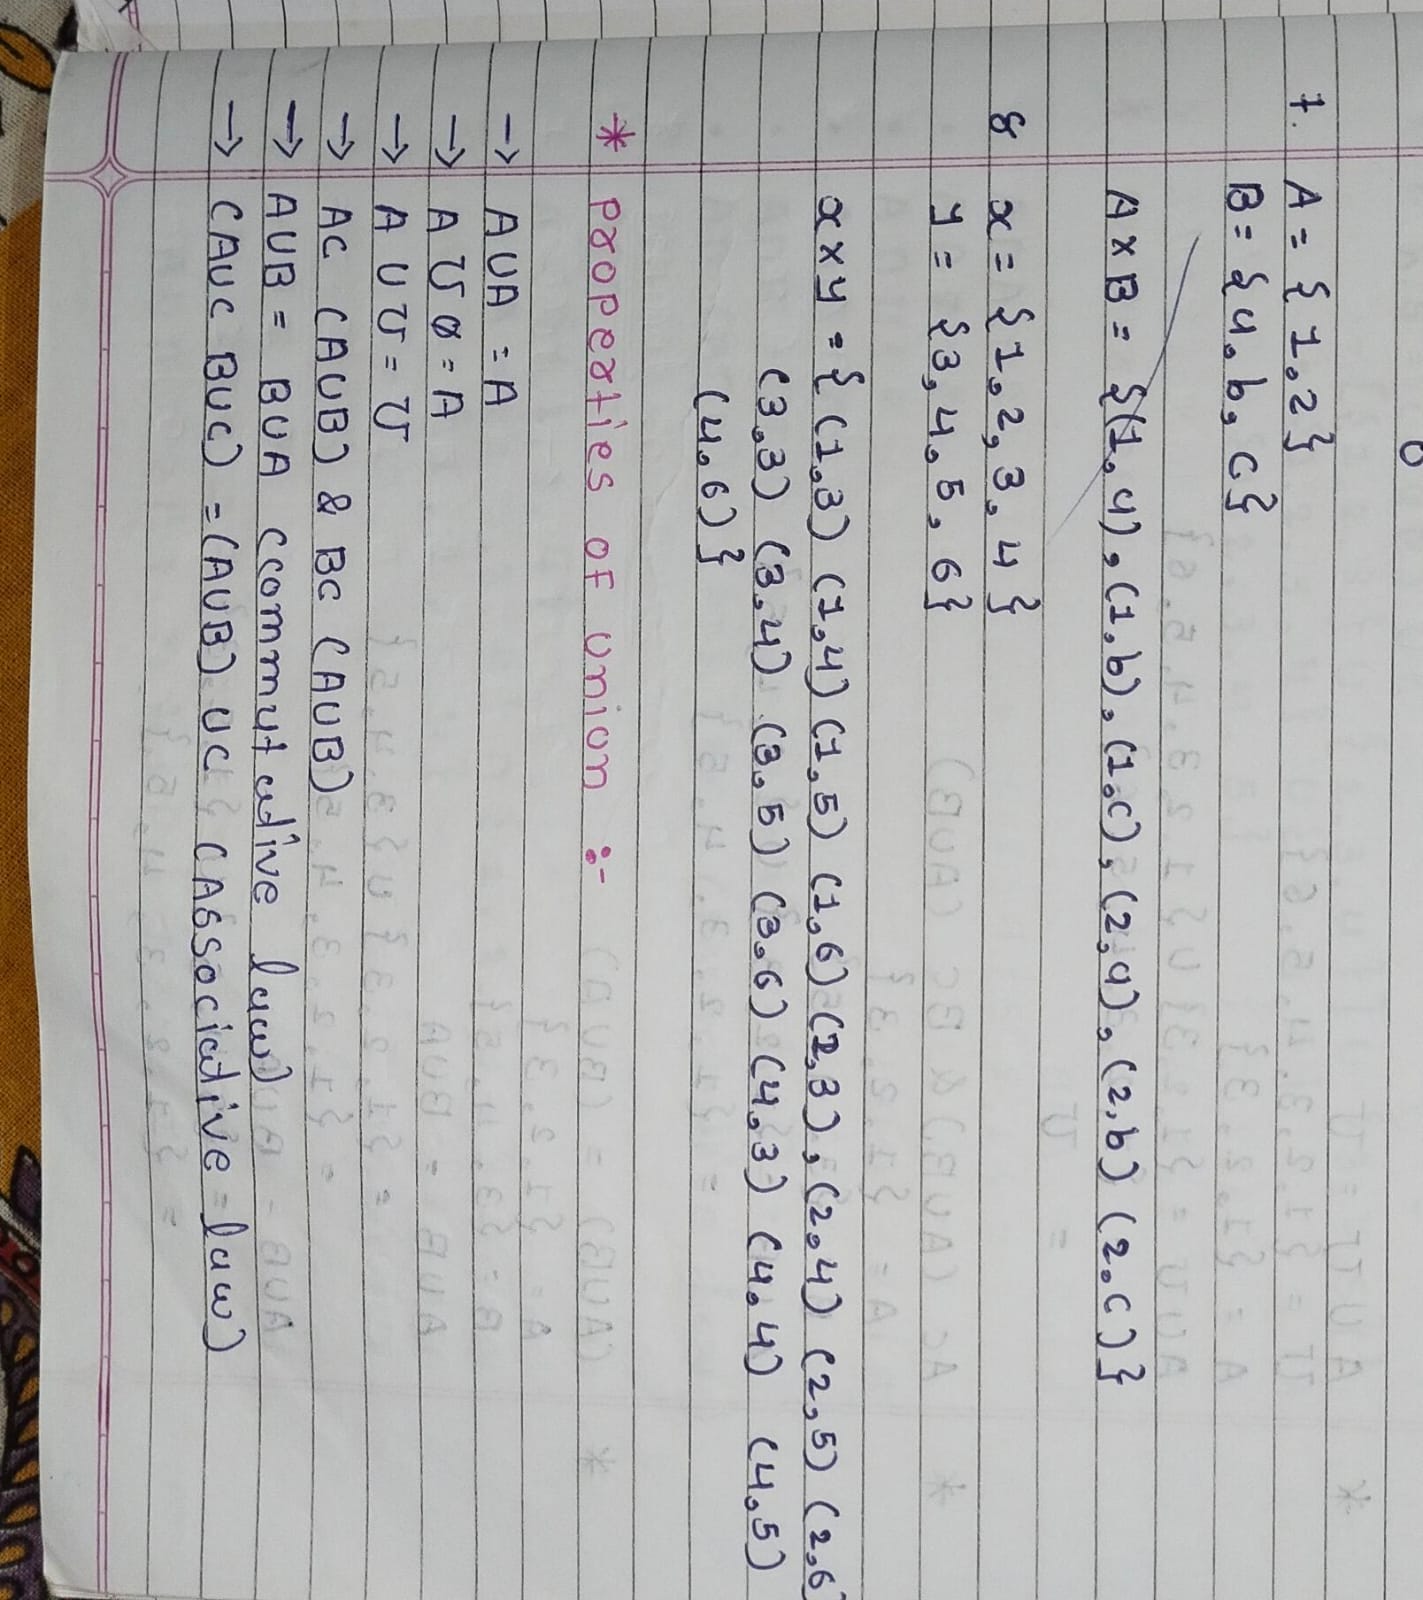 7. A = { 1,2}
B = {a, b, c}
A x B = {(1,a), (1,b), (1,c), (2,a), (2,b) (2,c)}
8 x = {1,2,3,4}
y = {3,4,5,6}
x x y = { (1,3) (1,4) (1,5) (1,6) (2,3), (2,4) (2,5) (2,6)
(3,3) (3,4) (3,5) (3,6) (4,3) (4,4) (4,5)
(4,6)}
* Properties of union :-
→ A ∪ A = A
→ A ∪ ø = A
→ A ∪ U = U
→ A ⊂ (A∪B) & B ⊂ (A∪B)
→ A∪B = B∪A (commutative law)
→ (A∪C B∪C) = (A∪B) ∪ C (Associative = law)